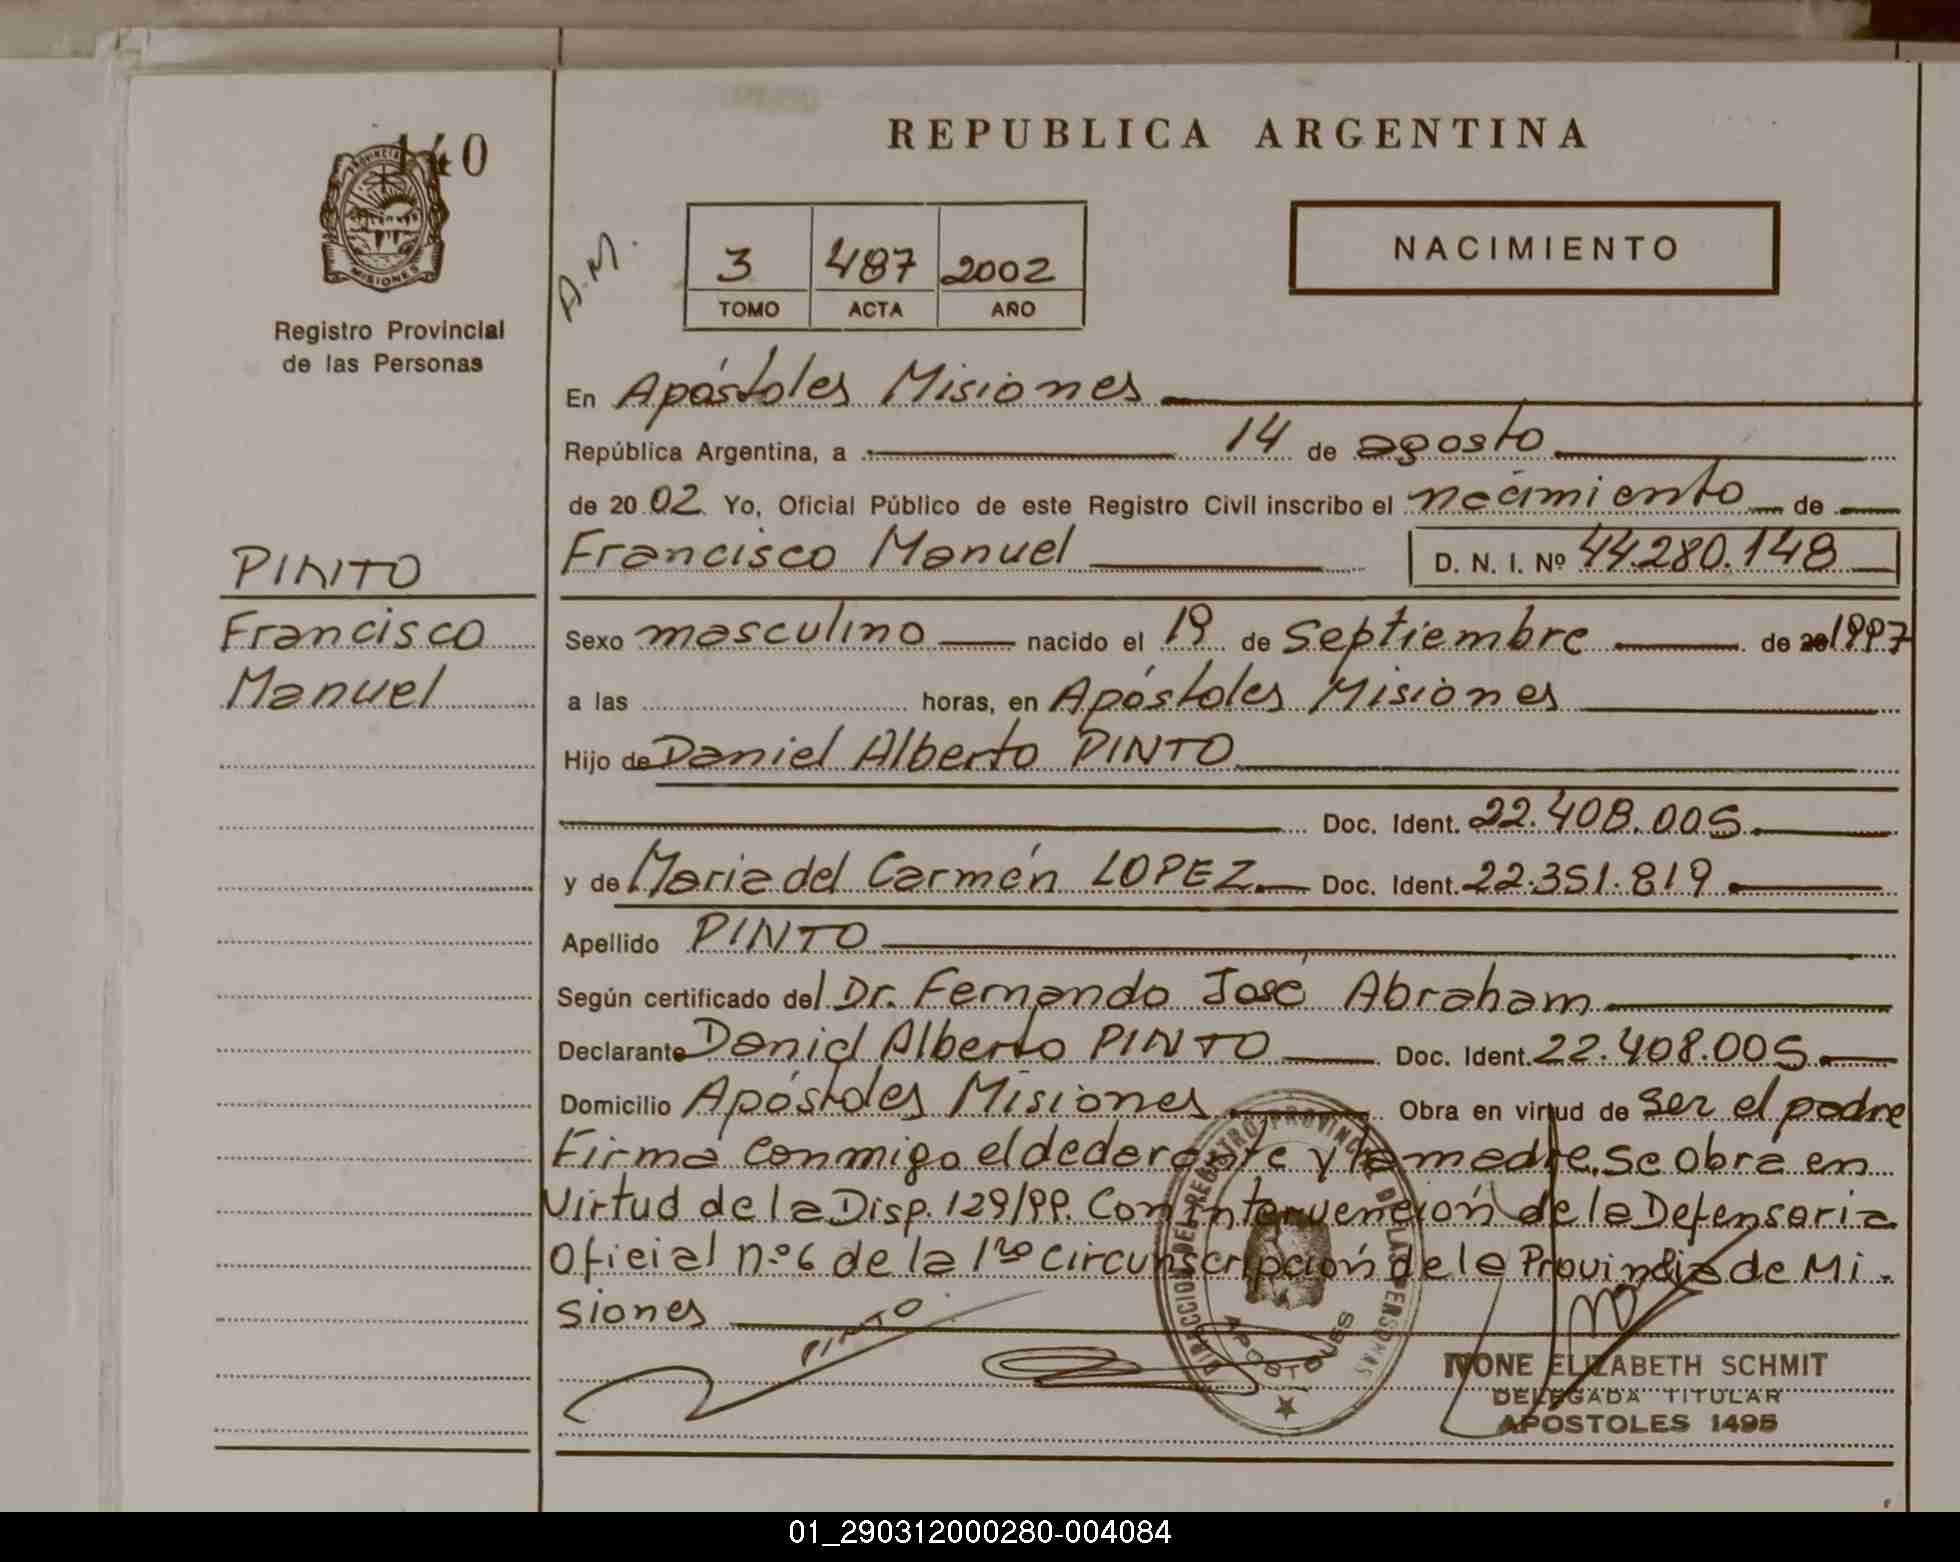 140
PROVINCIA
MISIONES
Registro Provincial
de las Personas
REPUBLICA ARGENTINA
A.M.
3 487 2002
TOMO ACTA AÑO
NACIMIENTO
En Apóstoles Misiones
República Argentina, a 14 de agosto
de 2002 Yo, Oficial Público de este Registro Civil inscribo el nacimiento de
Francisco Manuel D. N. I. Nº 44.280.148
PINTO
Francisco
Manuel
Sexo masculino nacido el 19 de Septiembre de 20 1997
a las horas, en Apóstoles Misiones
Hijo de Daniel Alberto PINTO
Doc. Ident. 22.408.005
y de Maria del Carmén LOPEZ Doc. Ident. 22.351.819
Apellido PINTO
Según certificado del Dr. Fernando José Abraham
Declarante Daniel Alberto PINTO Doc. Ident. 22.408.005
Domicilio Apóstoles Misiones Obra en virtud de ser el padre
Firma conmigo el declarante y la madre. Se obra en
virtud de la Disp. 129/99. Con intervención de la Defensoria
Oficial n:o 6 de la 1ra Circunscripción de la Provincia de Mi-
siones
PINTO
DIRECCION DEL REGISTRO PROVINCIAL DE LAS PERSONAS
APOSTOLES
IVONE ELIZABETH SCHMIT
DELEGADA TITULAR
APOSTOLES 1495
01_290312000280-004084